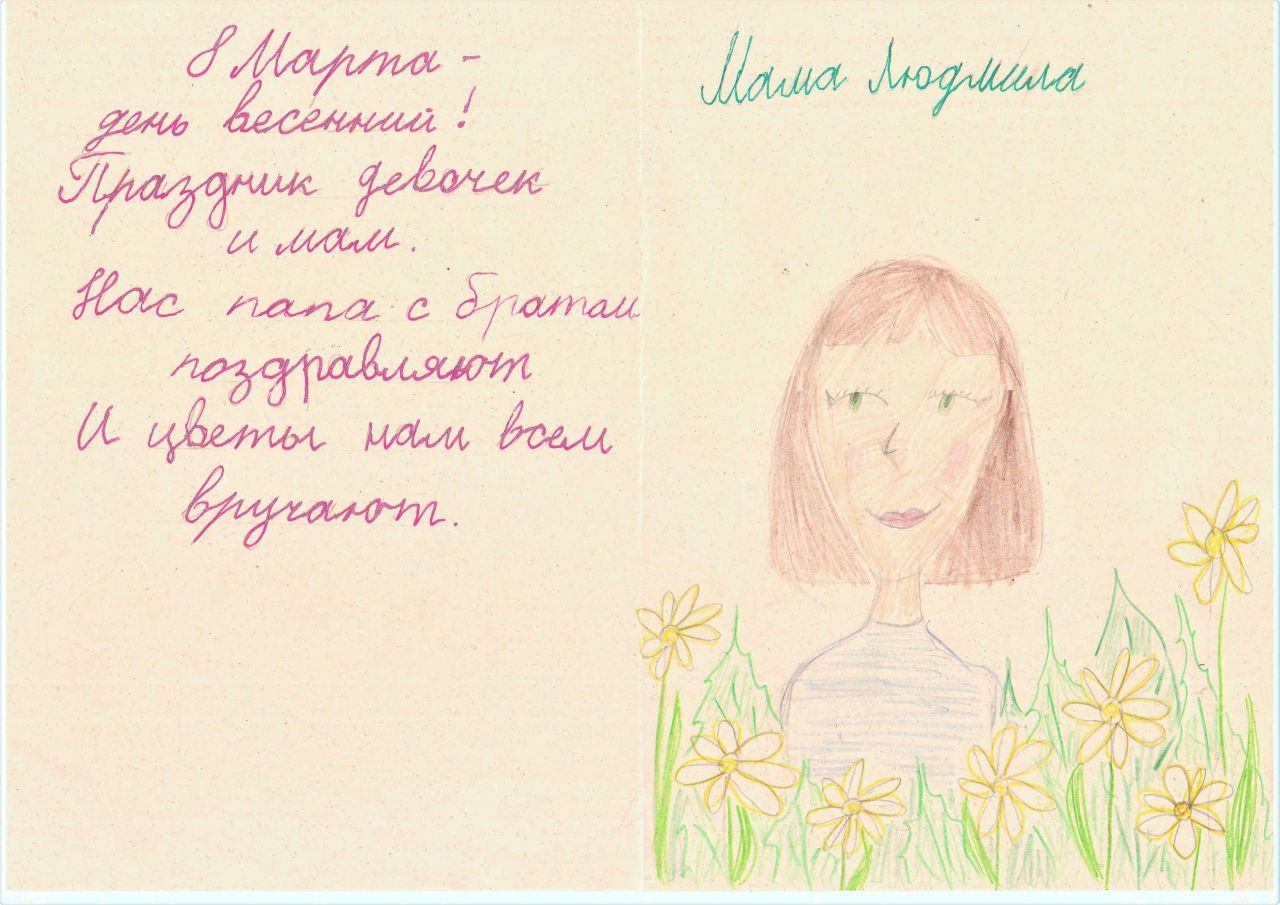 8 Марта -
день весенний!
Праздник девочек
и мам.
Нас папа с братом
поздравляют
И цветы нам всем
вручают.
Мама Людмила